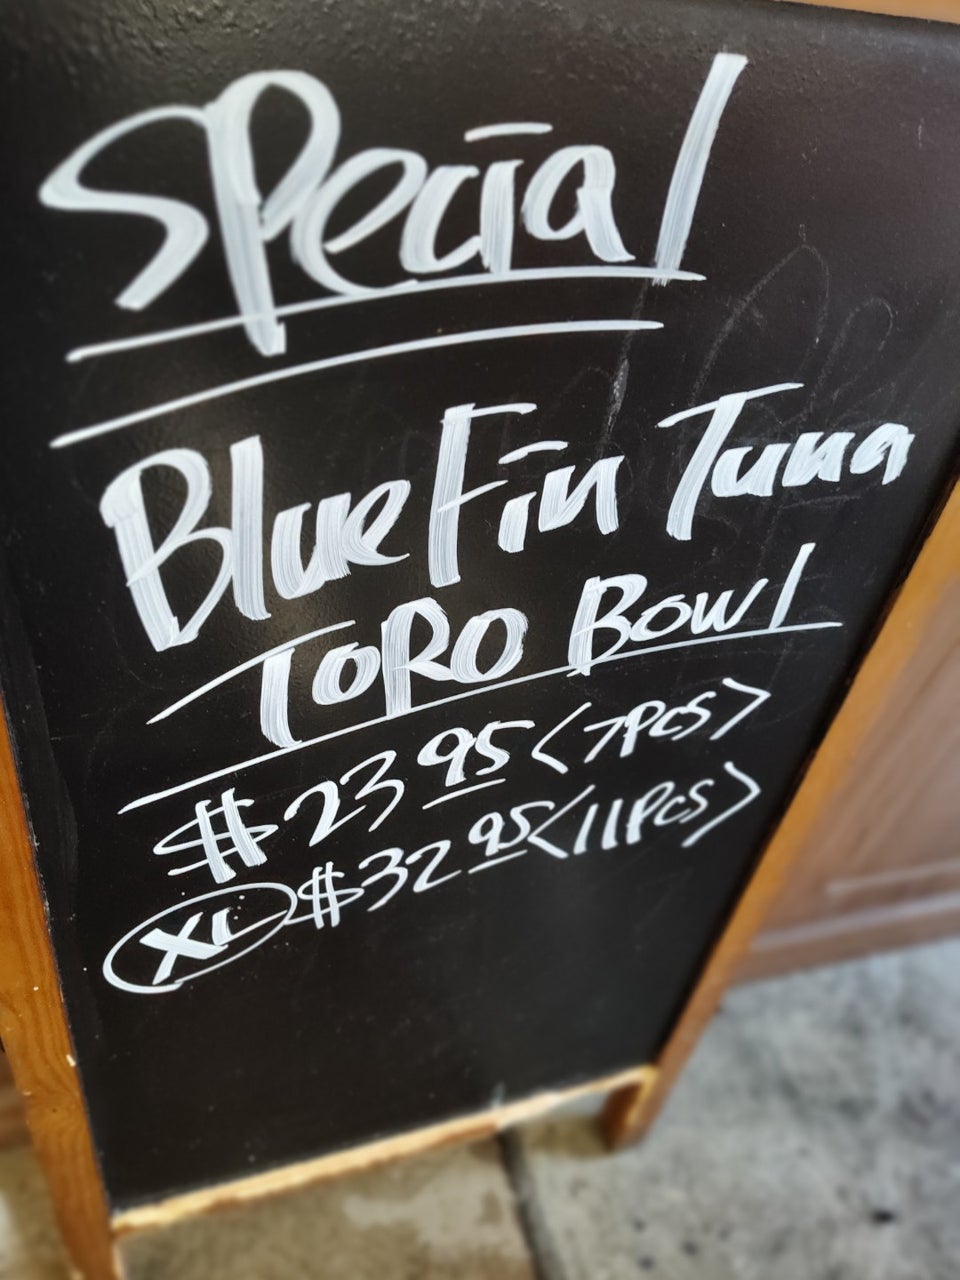 Special
BlueFin Tuna
TORO BOWl
$23 95 <7PCS>
XL $32 95 <11PCS>